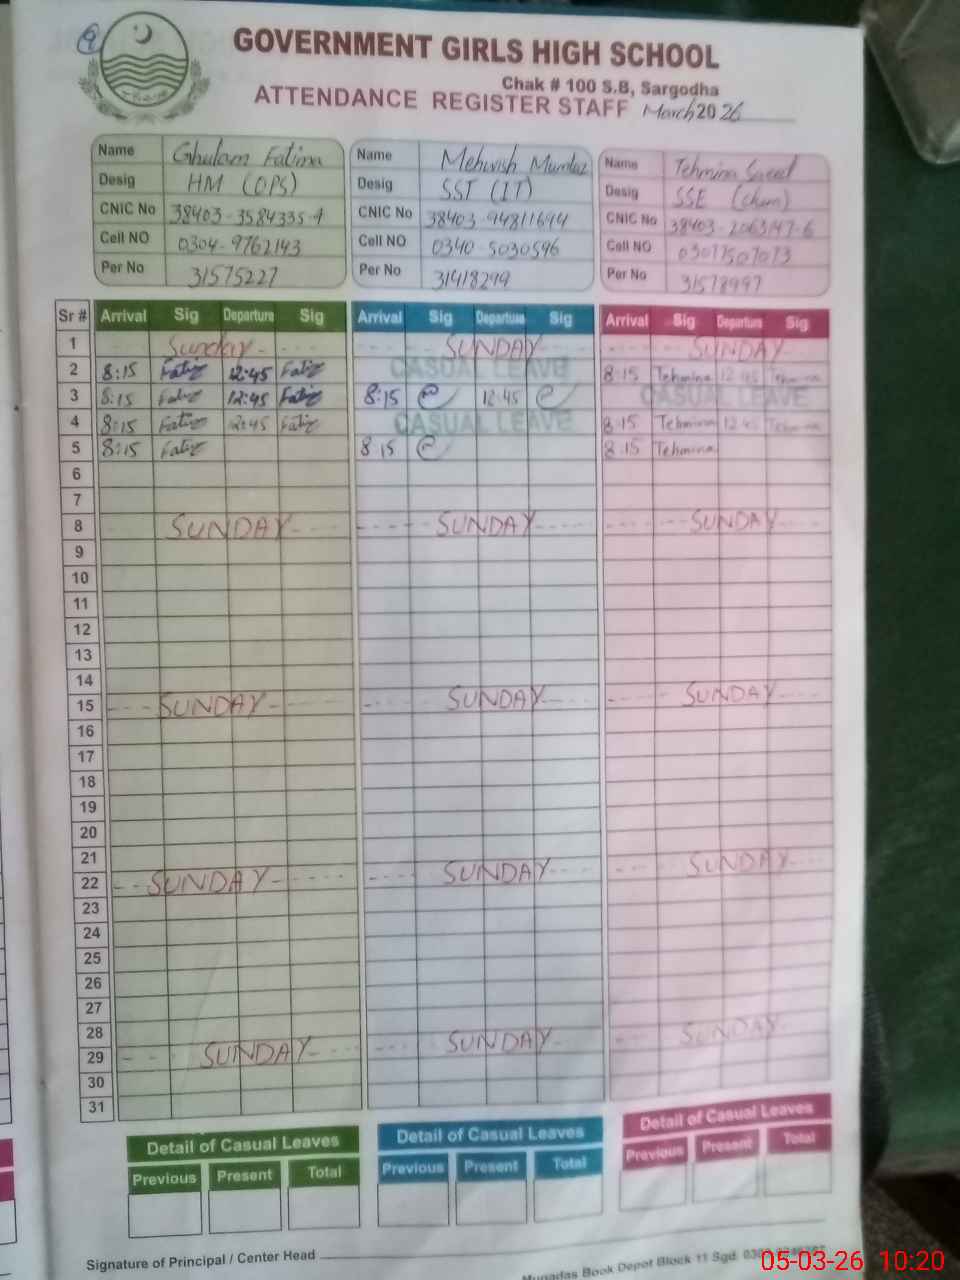 GOVERNMENT GIRLS HIGH SCHOOL
Chak # 100 S.B, Sargodha
ATTENDANCE REGISTER STAFF March 2026
Name Ghulam Fatima
Desig HM (OPS)
CNIC No 38403-3584335-4
Cell NO 0304-9762143
Per No 31575227
Name Mehwish Mumtaz
Desig SST (IT)
CNIC No 38403-94811694
Cell NO 0340-5030596
Per No 31418299
Name Tehmina Saeed
Desig SSE (Chem)
CNIC No 38403-2063147-6
Cell NO 03077507073
Per No 31578997
Sr # Arrival Sig Departure Sig Arrival Sig Departure Sig Arrival Sig Departure Sig
1 Sunday SUNDAY SUNDAY
2 8:15 Fatima 12:45 Fatima CASUAL LEAVE 8:15 Tehmina 12:45 Tehmina
3 8:15 Fatima 12:45 Fatima 8:15 12:45 CASUAL LEAVE
4 8:15 Fatima 12:45 Fatima CASUAL LEAVE 8:15 Tehmina 12:45 Tehmina
5 8:15 Fatima 8:15 8:15 Tehmina
6
7
8 SUNDAY SUNDAY SUNDAY
9
10
11
12
13
14
15 SUNDAY SUNDAY SUNDAY
16
17
18
19
20
21
22 SUNDAY SUNDAY SUNDAY
23
24
25
26
27
28
29 SUNDAY SUNDAY SUNDAY
30
31
Detail of Casual Leaves Detail of Casual Leaves Detail of Casual Leaves
Previous Present Total Previous Present Total Previous Present Total
Signature of Principal / Center Head
Book Depot Block 11 Sgd.
05-03-26 10:20